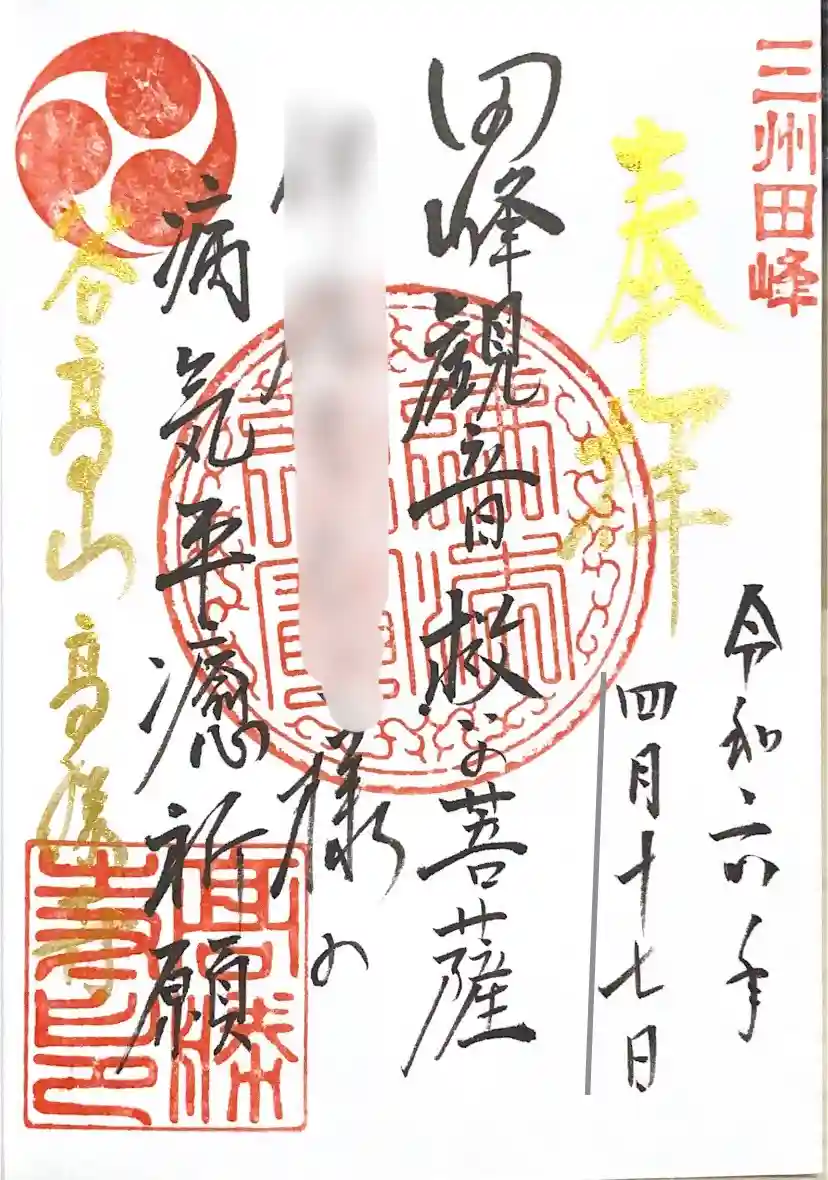 三州田峰
奉拝
令和六年
四月十七日
田峰観音 救いの菩薩
様の
病気平癒祈願
谷高山 高勝寺
高勝寺印